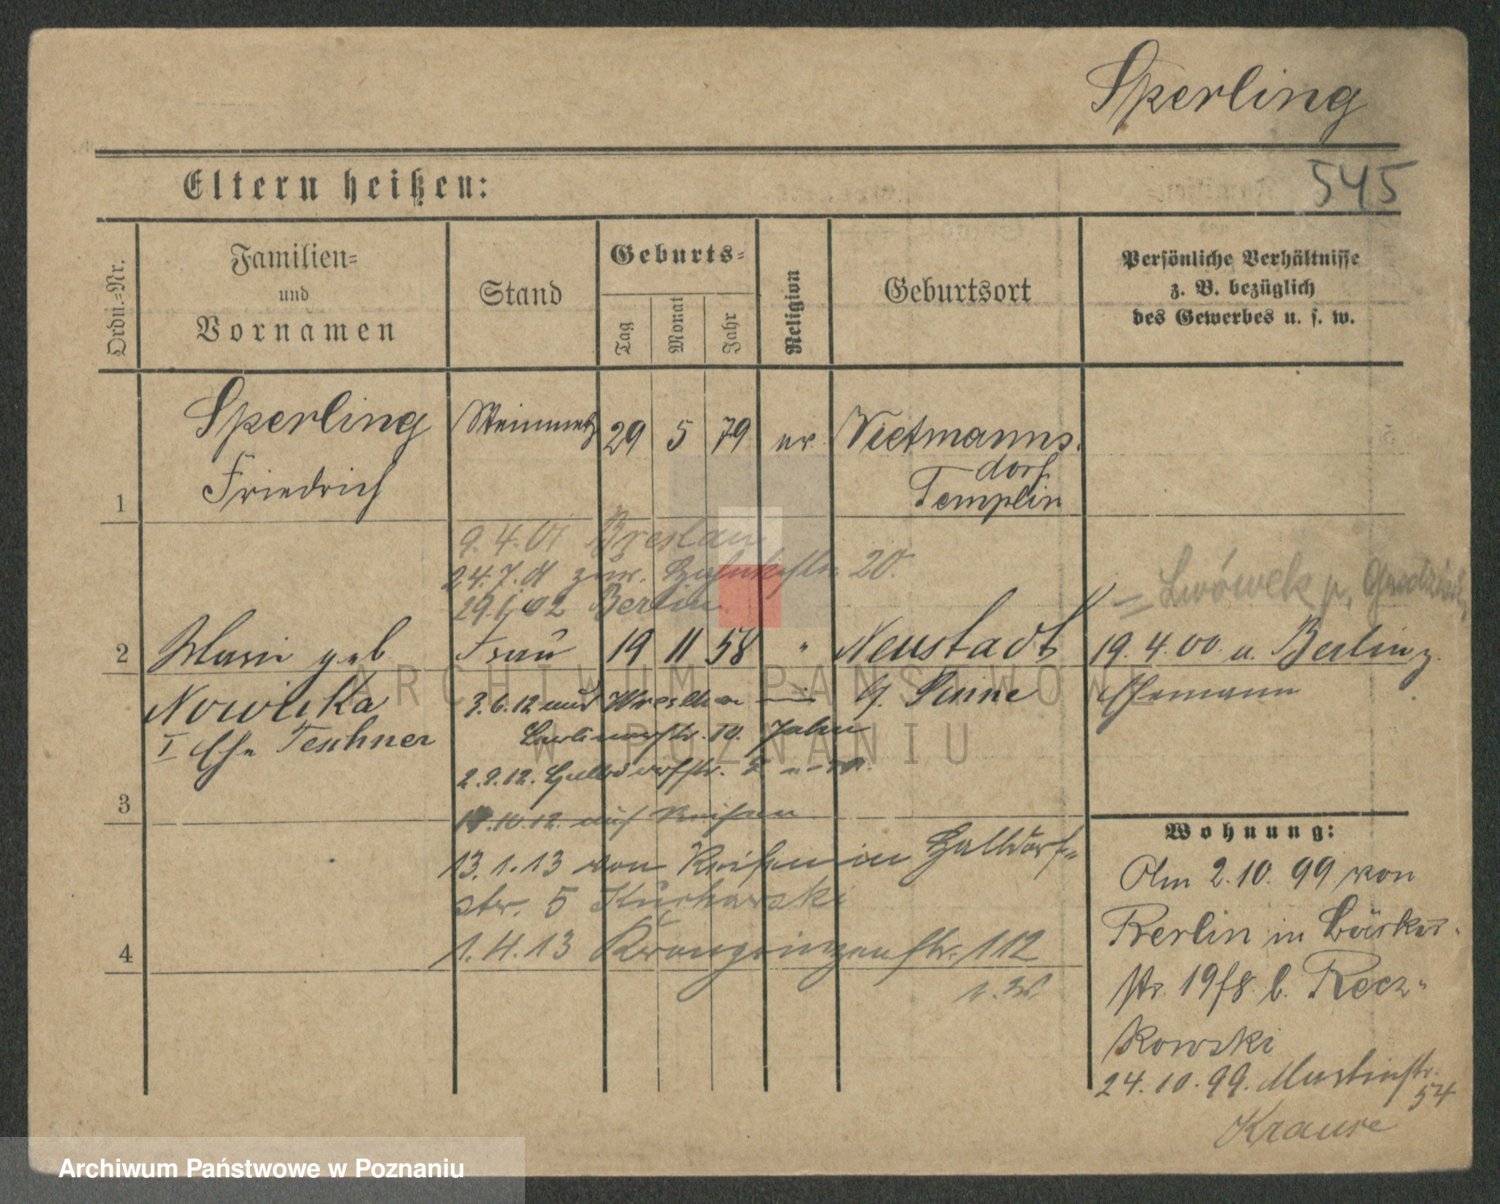 Sperling
545
Eltern heißen:
Ordn.=Nr.
Familien=
und
Vornamen
Stand
Geburts=
Tag
Monat
Jahr
Religion
Geburtsort
Persönliche Verhältnisse
z. B. bezüglich
des Gewerbes u. s. w.
1
Sperling
Friedrich
Steinmetz
29 5 79
ev
Vietmanns
dorf
Templin
9.4.01 Breslau
24.7.01 zur. 20.
29.1.02 Berlin
Lwówek p. Grodzisk
2
Marie geb
Nowicka
I Ehe Teschner
Frau
19 11 58
"
Neustadt
b. Pinne
19.4.00 v. Berlin z.
Ehemann
3.6.12
2.9.12.
3
10.12. auf Reisen
13.1.13 von Reisen in
str. 5 Kucharski
4
1.4.13 Kronprinzenstr. 112
Wohnung:
Am 2.10.99 von
Berlin in Bäcker-
str. 19/8 b. Recz-
kowski
24.10.99. Martinstr.
54
Krause
ARCHIWUM PAŃSTWOWE
W POZNANIU
Archiwum Państwowe w Poznaniu